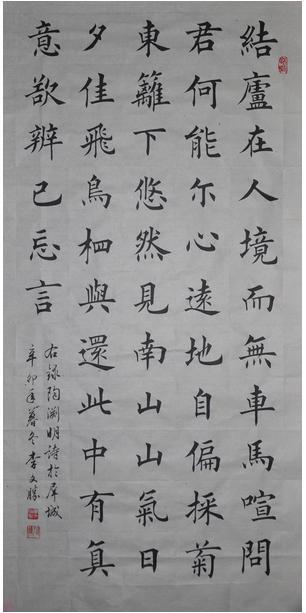 結廬在人境而無車馬喧問
君何能尔心遠地自偏採菊
東籬下悠然見南山山氣日
夕佳飛鳥相與還此中有真
意欲辨已忘言
右録陶渊明詩於犀城
辛卯年暮冬李文勝